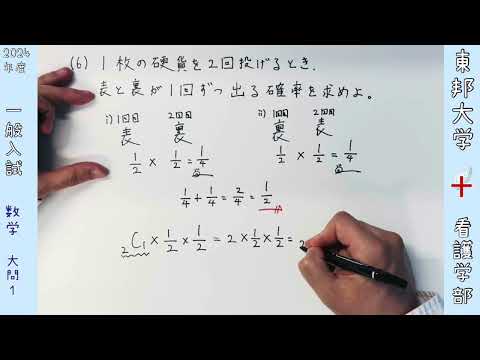 2024年度
一般入試
数学 大問1
(6) 1枚の硬貨を2回投げるとき、
表と裏が1回ずつ出る確率を求めよ。
i) 1回目 2回目 ii) 1回目 2回目
表 裏 裏 表
1/2 × 1/2 = 1/4 1/2 × 1/2 = 1/4
1/4 + 1/4 = 2/4 = 1/2
₂C₁ × 1/2 × 1/2 = 2 × 1/2 × 1/2 = 2
東邦大学
看護学部